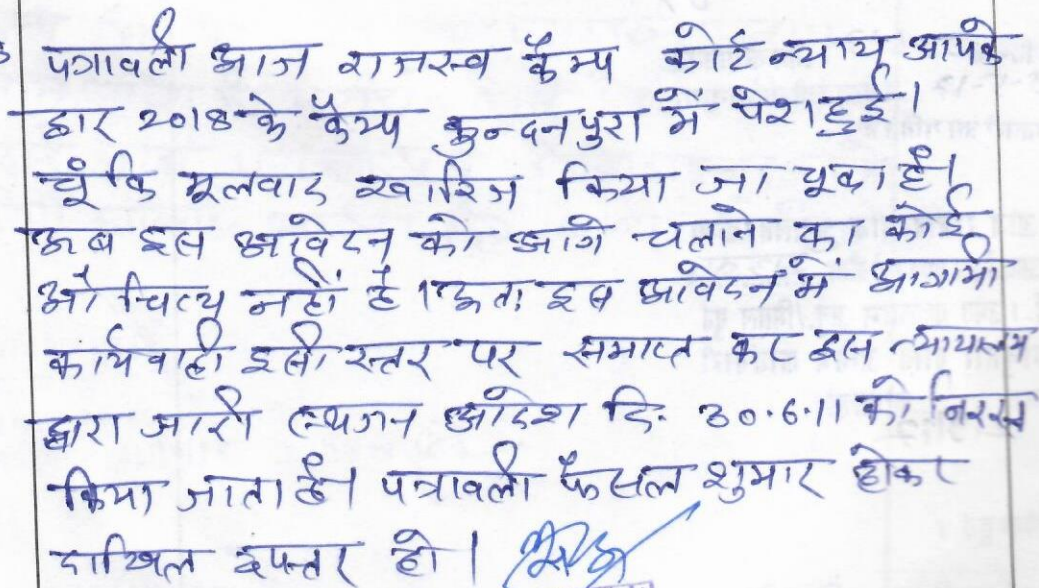 पत्रावली आज राजस्व कैम्प कोर्ट न्याय आपके
द्वार 2018 के कैम्प कुन्दनपुरा में पेश हुई।
चूंकि मूलवाद खारिज किया जा चूका है।
अब इस आवेदन को आगे चलाने का कोई
औचित्य नहीं है। अतः इस आवेदन में आगामी
कार्यवाही इसी स्तर पर समाप्त कर इस न्यायालय
द्वारा जारी स्थगन आदेश दि. 30.6.11 को निरस्त
किया जाता है। पत्रावली फैसल शुमार होकर
दाखिल दफ्तर हो।